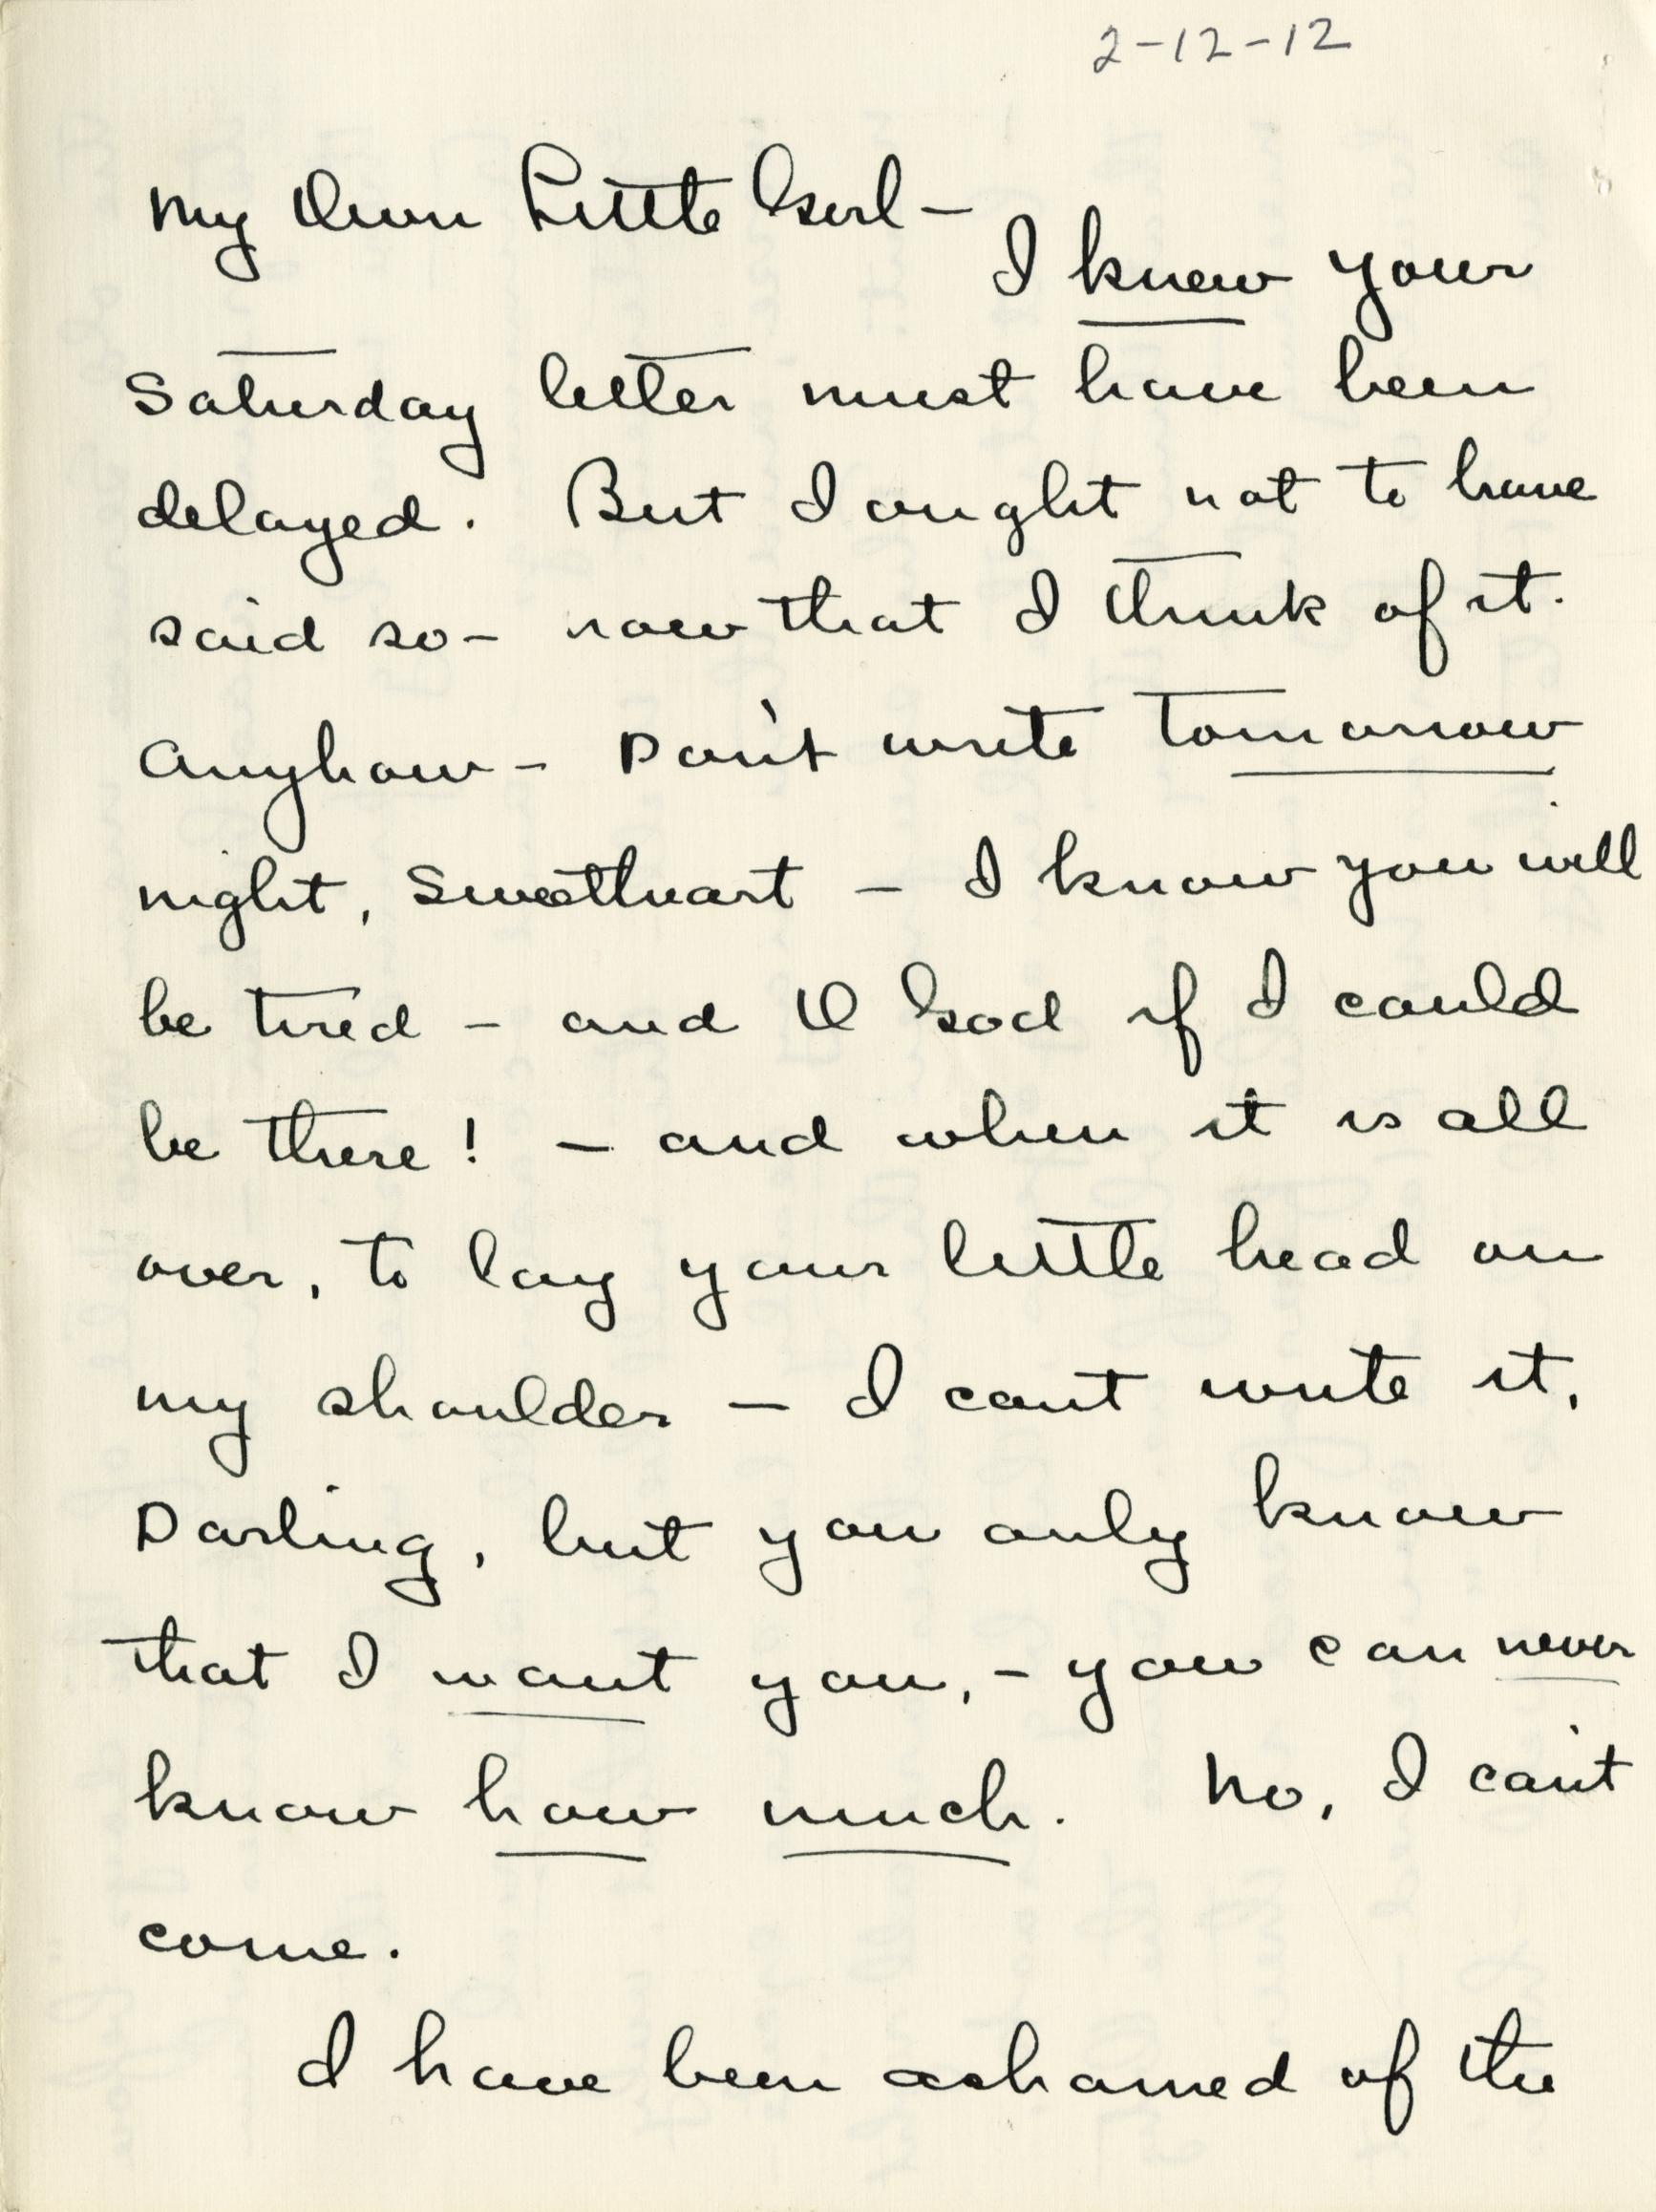 2-12-12
My Own Little Girl -
I knew your
Saturday letter must have been
delayed. But I ought not to have
said so - now that I think of it.
Anyhow - Don't write tomorrow
night, Sweetheart - I know you will
be tired - and O God if I could
be there! - and when it is all
over, to lay your little head on
my shoulder - I cant write it,
Darling, but you only know
that I want you, - you can never
know how much. No, I can't
come.
I have been ashamed of the